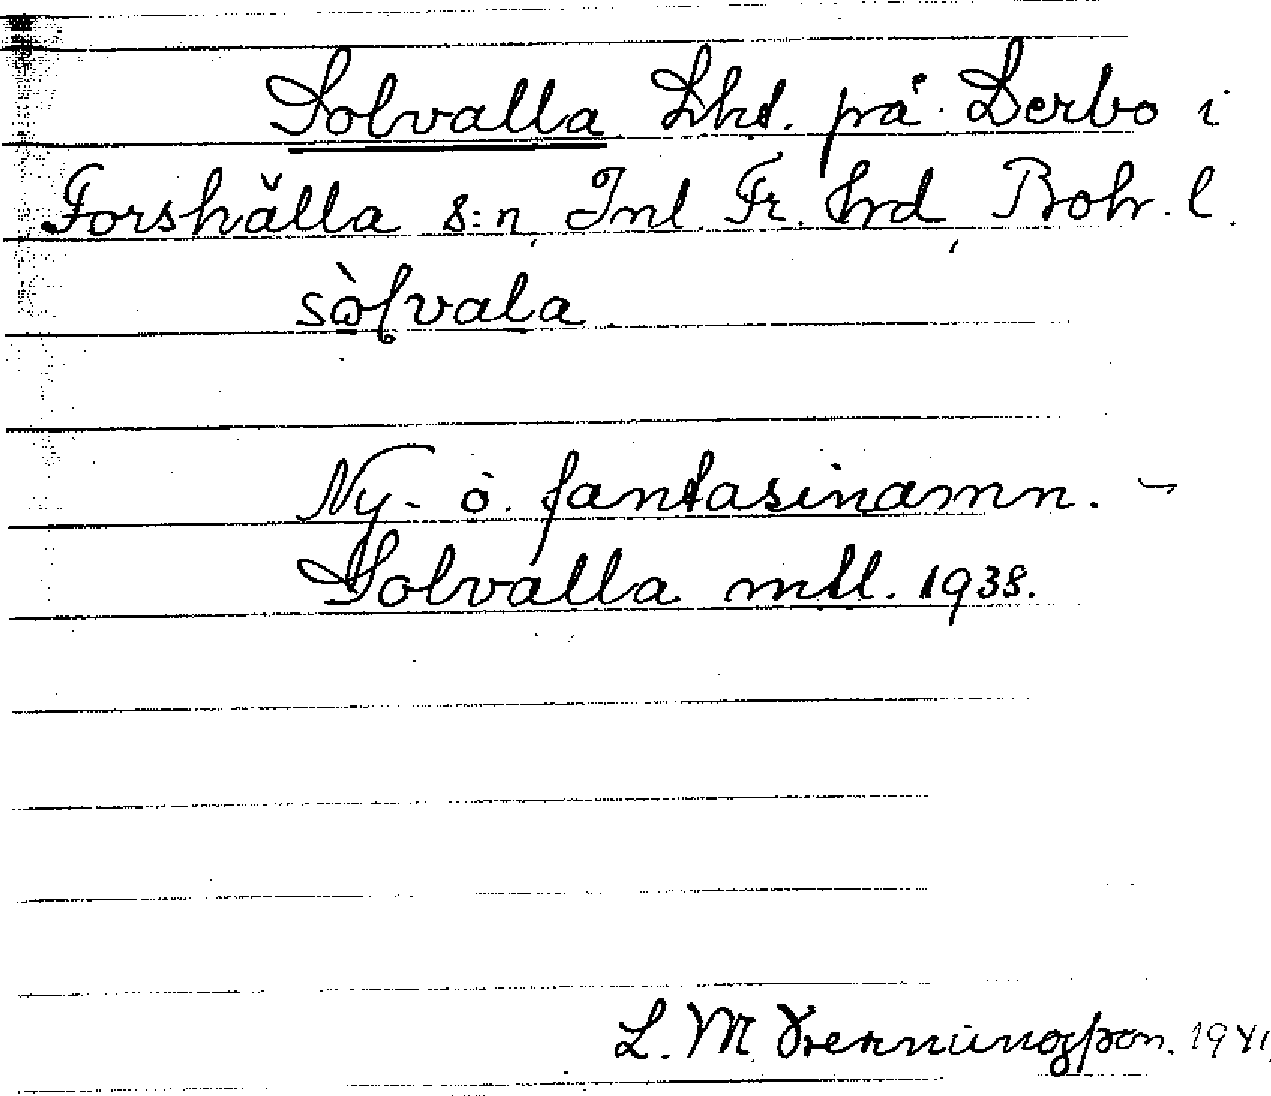 Solvalla Lht. på Lerbo i
Forshälla s:n, Inl Fr. hrd, Boh. l.
sòlvala
Ny- o. fantasinamn. –
Solvalla mtl. 1938.
L. M. 1941